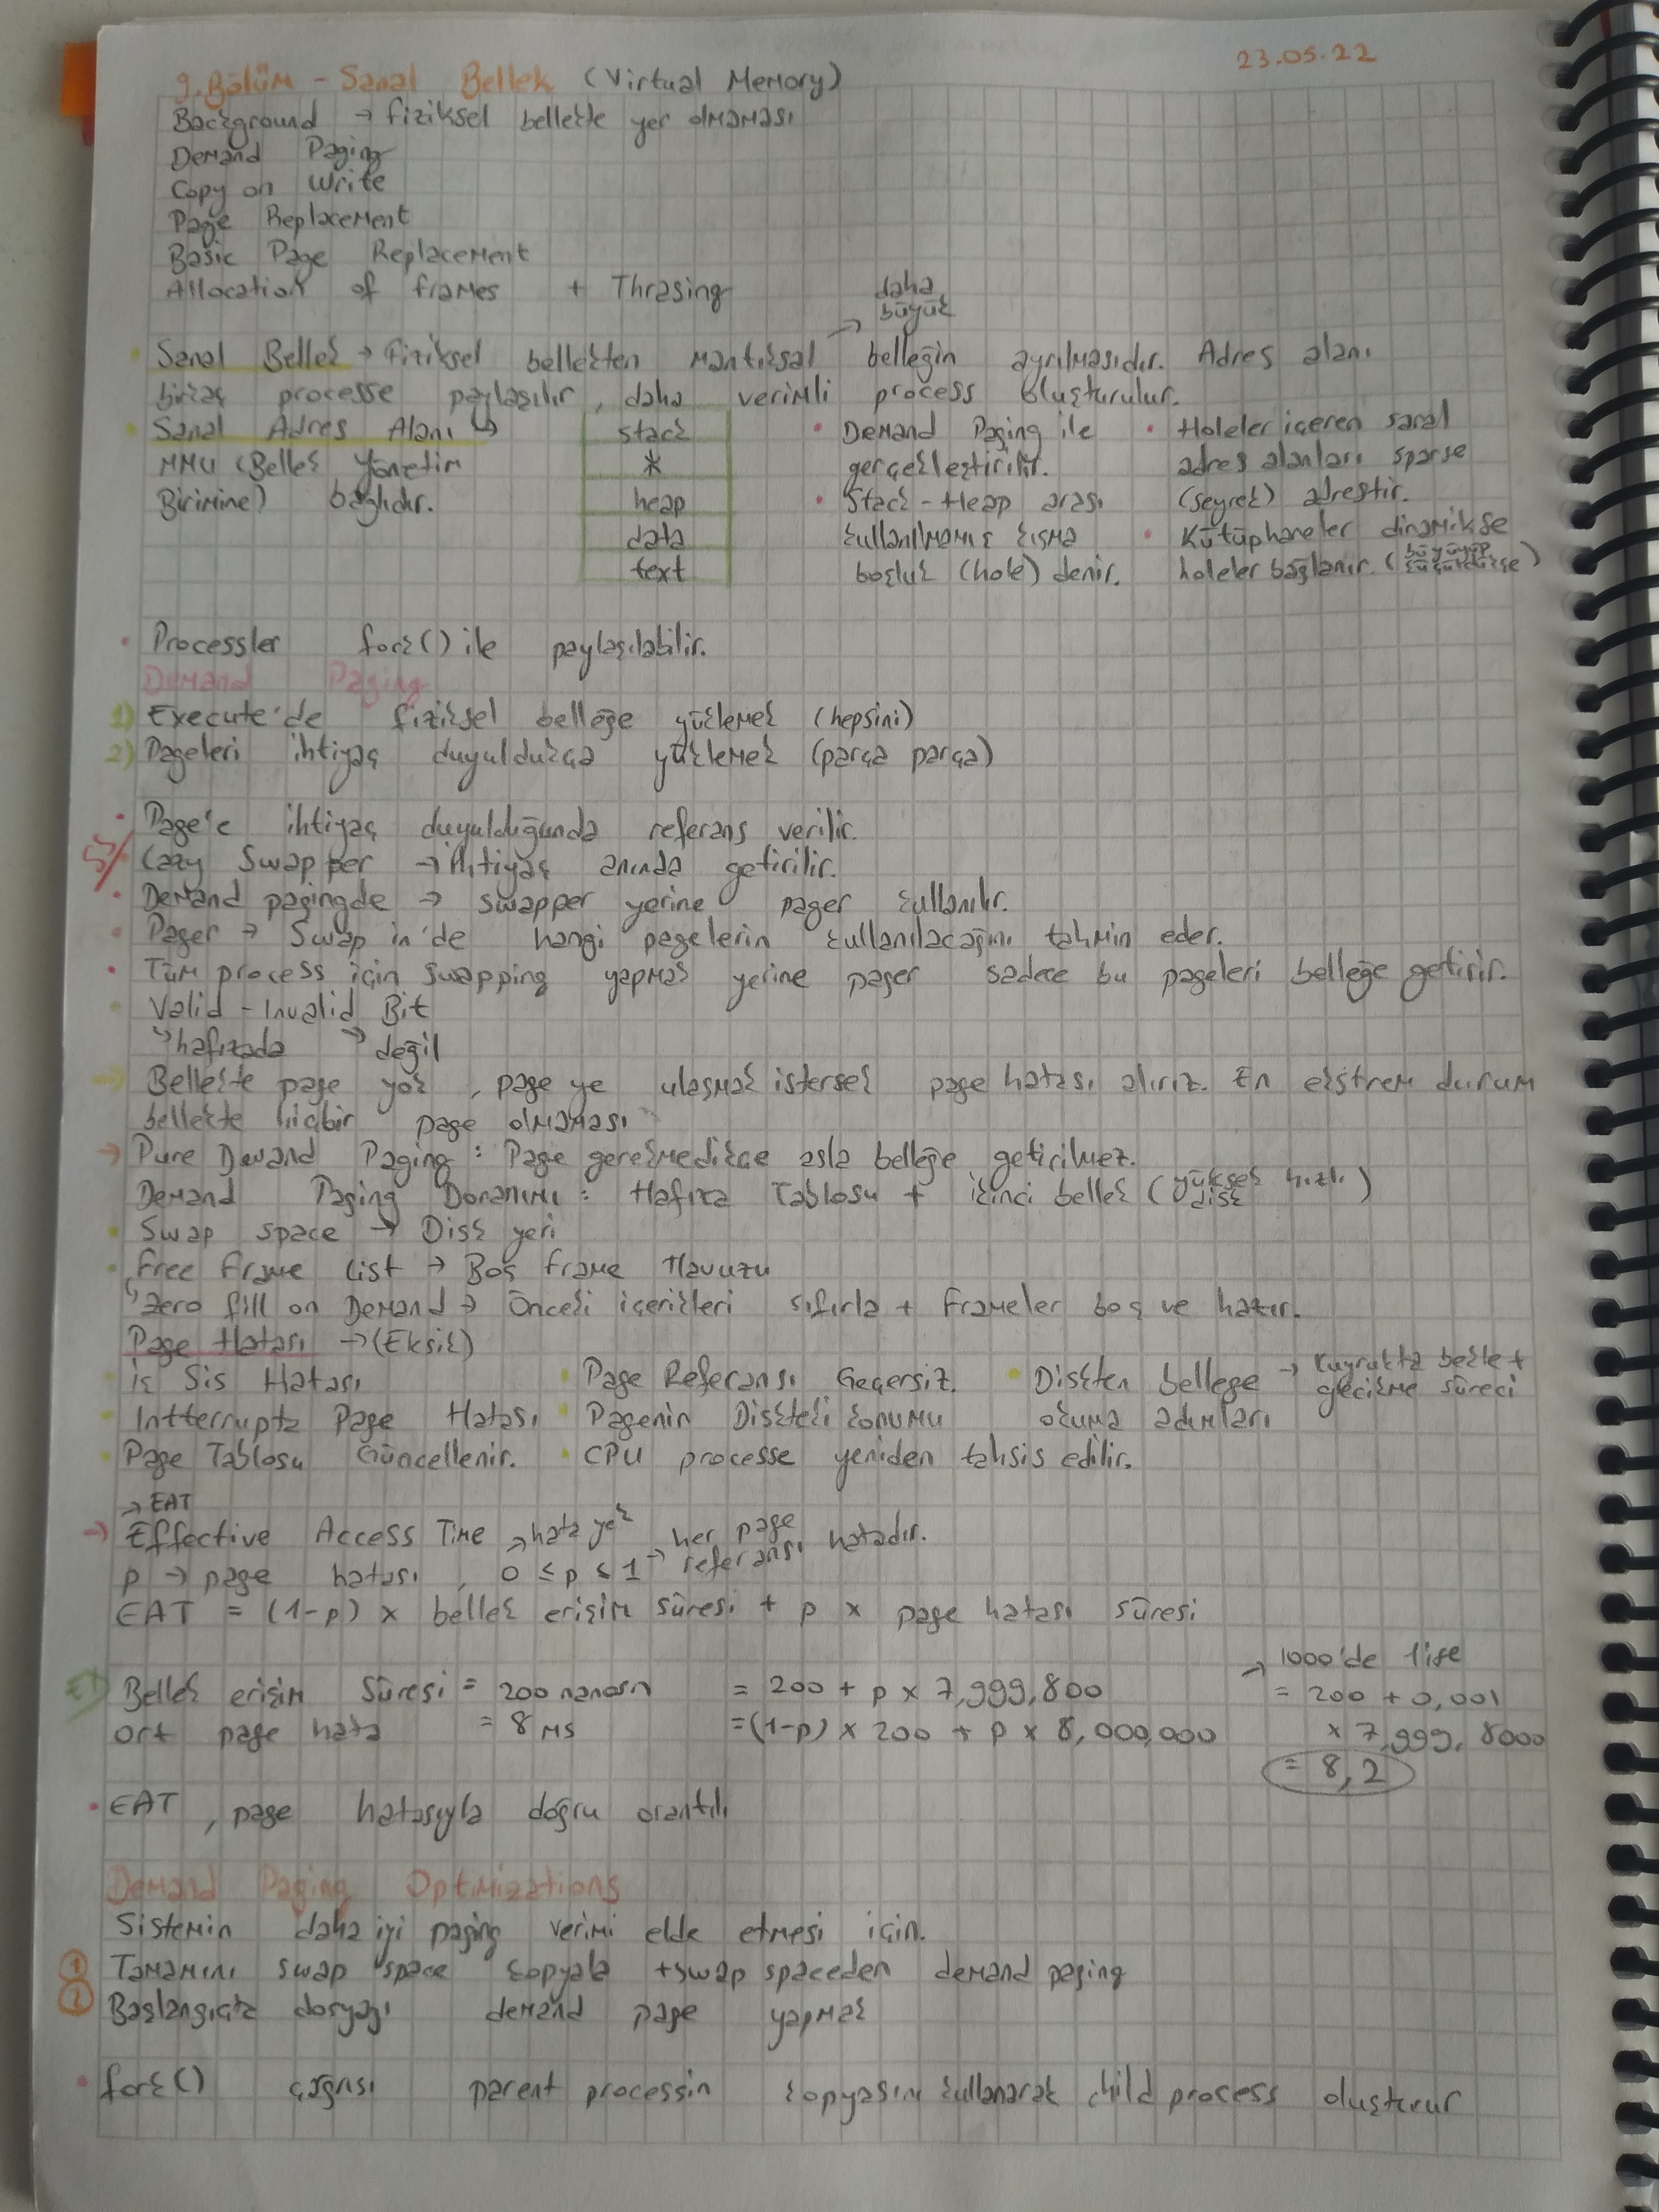 23.05.22
9.Bölüm - Sanal Bellek (Virtual Memory)
Background → fiziksel bellekte yer olmaması
Demand Paging
Copy on Write
Page Replacement
Basic Page Replacement
Allocation of frames + Thrasing
daha
büyük
• Sanal Bellek → Fiziksel bellekten mantıksal → belleğin ayrılmasıdır. Adres alanı
birkaç processe paylaşılır, daha verimli process oluşturulur.
• Sanal Adres Alanı ↳
MMU (Bellek Yönetim
Birimine) bağlıdır.
stack
*
heap
data
text
• Demand Paging ile
gerçekleştirilir.
• Stack - Heap arası
kullanılmamış kısma
boşluk (hole) denir.
• Holeler içeren sanal
adres alanları sparse
(seyrek) adrestir.
• Kütüphaneler dinamikse
holeler bağlanır. (büyüyüp küçüldükçe)
• Processler fork() ile paylaşılabilir.
Demand Paging
1) Execute'de fiziksel belleğe yüklemek (hepsini)
2) Pageleri ihtiyaç duyuldukça yüklemek (parça parça)
• Page'e ihtiyaç duyulduğunda referans verilir.
Lazy Swapper → ihtiyaç anında getirilir.
• Demand pagingde → swapper yerine pager kullanılır.
• Pager → Swap in'de hangi pagelerin kullanılacağını tahmin eder.
• Tüm process için swapping yapmak yerine pager sadece bu pageleri belleğe getirir.
• Valid - Invalid Bit
↳ hafızada ↳ değil
→ Bellekte page yok, page ye ulaşmak istersek page hatası alırız. En ekstrem durum
bellekte hiçbir page olmaması
→ Pure Demand Paging : Page gerekmedikçe asla belleğe getirilmez.
Demand Paging Donanımı : Hafıza Tablosu + ikinci bellek (yüksek hızlı disk)
• Swap space → Disk yeri
• Free Frame List → Boş frame Havuzu
↳ Zero fill on Demand → Önceki içerikleri sıfırla + Frameler boş ve hazır.
Page Hatası → (Eksik)
• İş Sis Hatası
• Intterrupta Page Hatası
• Page Tablosu Güncellenir.
• Page Referansı Geçersiz.
• Pagenin Diskteki konumu
• CPU processe yeniden tahsis edilir.
• Diskten bellege → Kuyrukta bekle +
gecikme süreci
okuma adımları
→ EAT
→ Effective Access Time → hata yok her page hatadır.
p → page hatası, 0 ≤ p ≤ 1 → referansı
EAT = (1-p) x bellek erişim süresi + p x page hatası süresi
Bellek erişim Süresi = 200 nanosn
ort page hata = 8 ms
= 200 + p x 7,999,800
=(1-p) x 200 + p x 8,000,000
→ 1000'de 1 ise
= 200 + 0,001
x 7,999,8000
= 8,2
• EAT, page hatasıyla doğru orantılı
Demand Paging Optimizations
Sistemin daha iyi paging verimi elde etmesi için.
1 Tamamını swap space kopyala + swap spaceden demand paging
2 Başlangıçta dosyayı demand page yapmak
• fork() çağrısı parent processin kopyasını kullanarak child process oluşturur